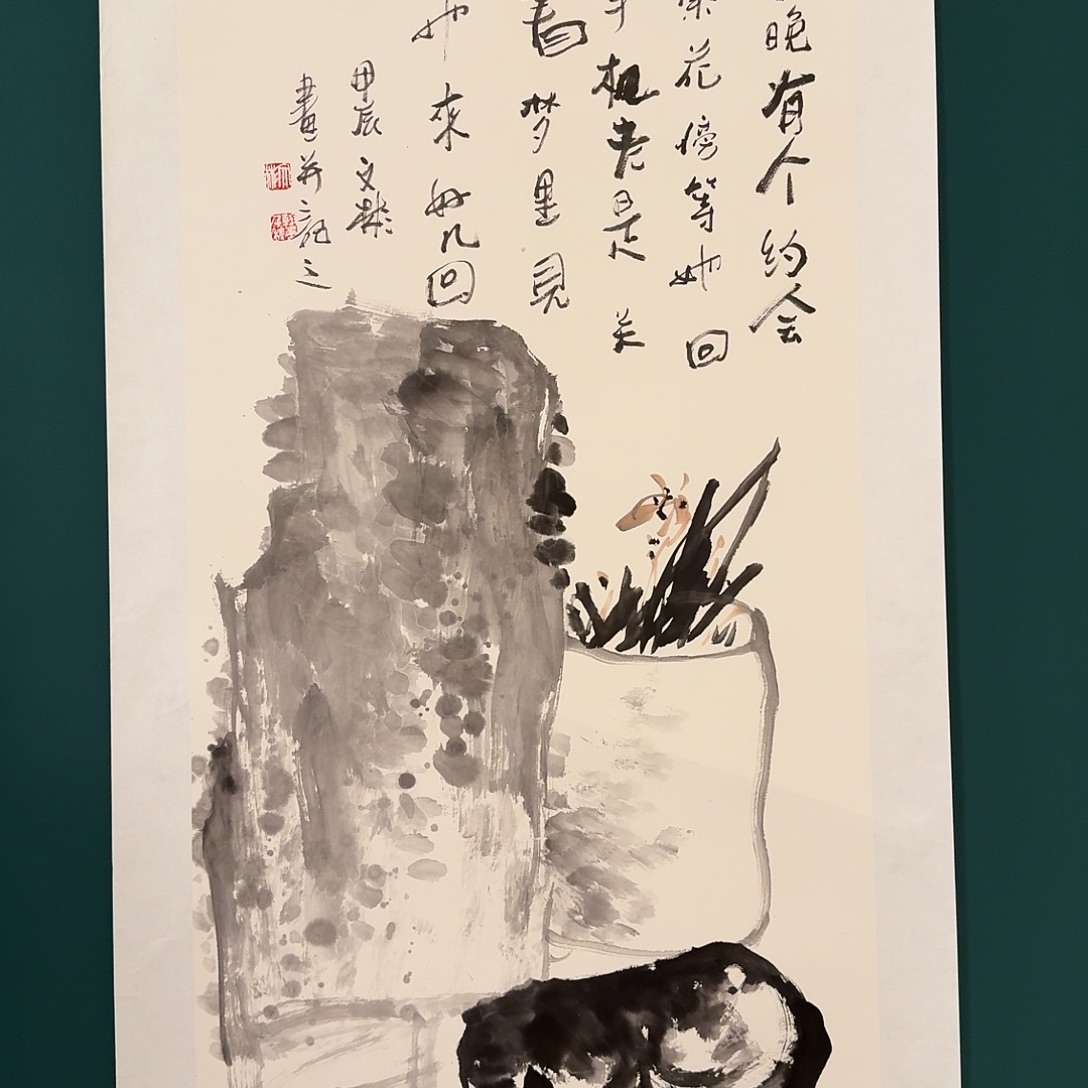 晚有个约会
花傍等她回
机老是关
着梦里见
她来好几回
甲辰文彬
畫并記之